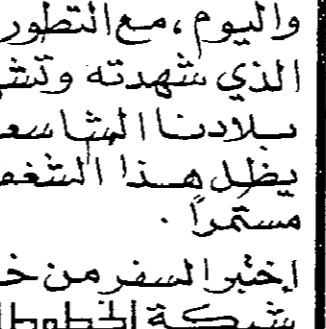 واليوم ، مع التطور
الذي شهدته وتشه
بلادنا الشاسع
يظل هذا الشغف
مستمراً .
إختبر السفر من خ
شركة الخطوط ا